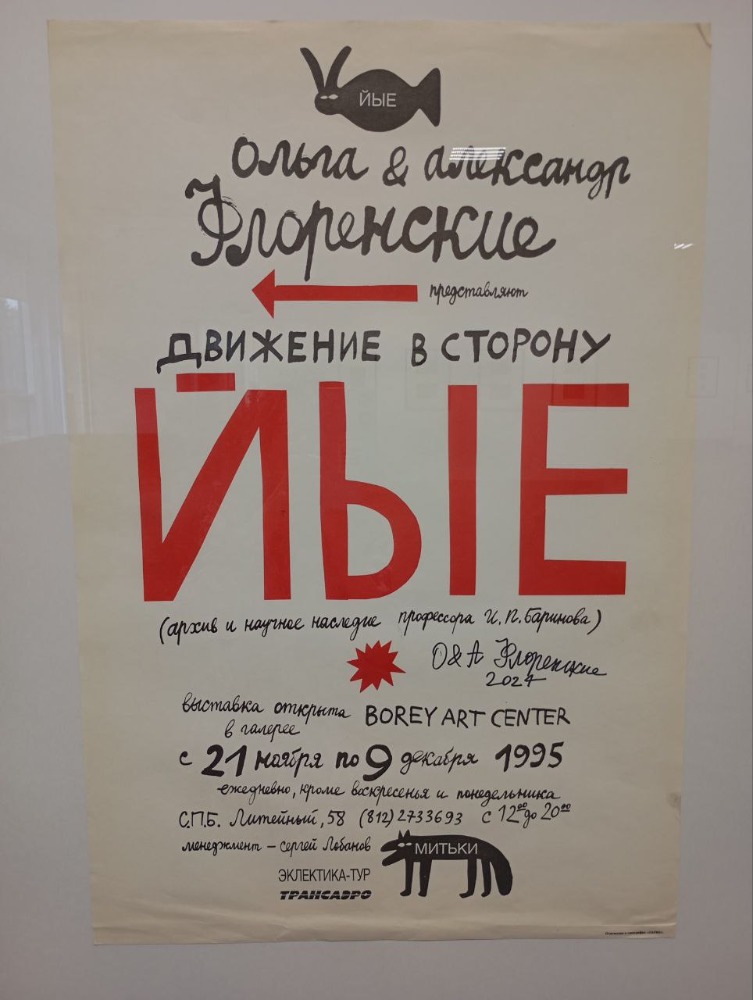 ЙЫЕ
Ольга & Александр
Флоренские
представляют
ДВИЖЕНИЕ В СТОРОНУ
ЙЫЕ
(архив и научное наследие профессора И.П. Баринова)
О&А Флоренские
2024
выставка открыта
в галерее BOREY ART CENTER
с 21 ноября по 9 декабря 1995
ежедневно, кроме воскресенья и понедельника
С.П.Б. Литейный, 58 (812) 2733693 с 12⁰⁰ до 20⁰⁰
менеджмент – Сергей Лобанов
МИТЬКИ
ЭКЛЕКТИКА-ТУР
ТРАНСАЭРО